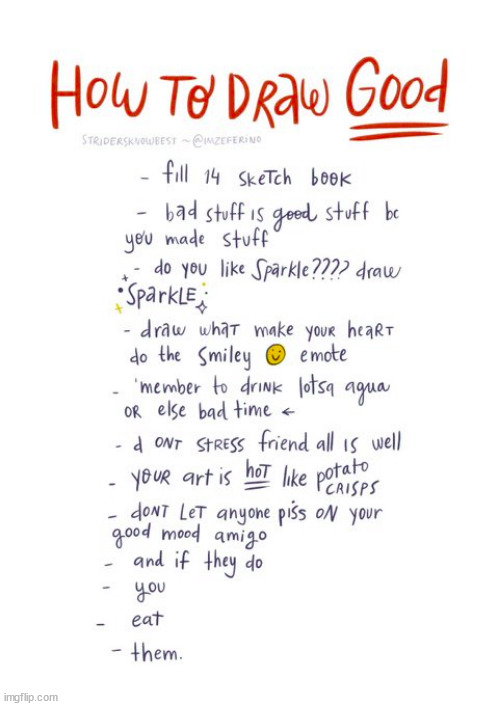 How To DRaw Good
STRIDERSKNOWBEST ~ @IMZEFERINO
- fill 14 SKeTch book
- bad stuff is good stuff bc
you made stuff
- do you like Sparkle???? draw
SparkLE
- draw whaT make youR heaRT
do the Smiley 🙂 emote
- 'member to drink lotsa agua
OR else bad time ←
- d ONT STRESS friend all is well
- YOUR art is hoT like potato
CRISPS
- dONT LeT anyone piss ON your
good mood amigo
- and if they do
- you
- eat
- them.
imgflip.com